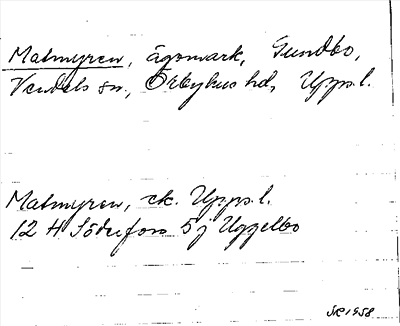 Malmyren, ägomark, Gundbo,
Vendels sn., Örbyhus hd, Upps. l.
Malmyren, ek. Upps. l.
12 H Söderfors 5 j Uggelbo
1958